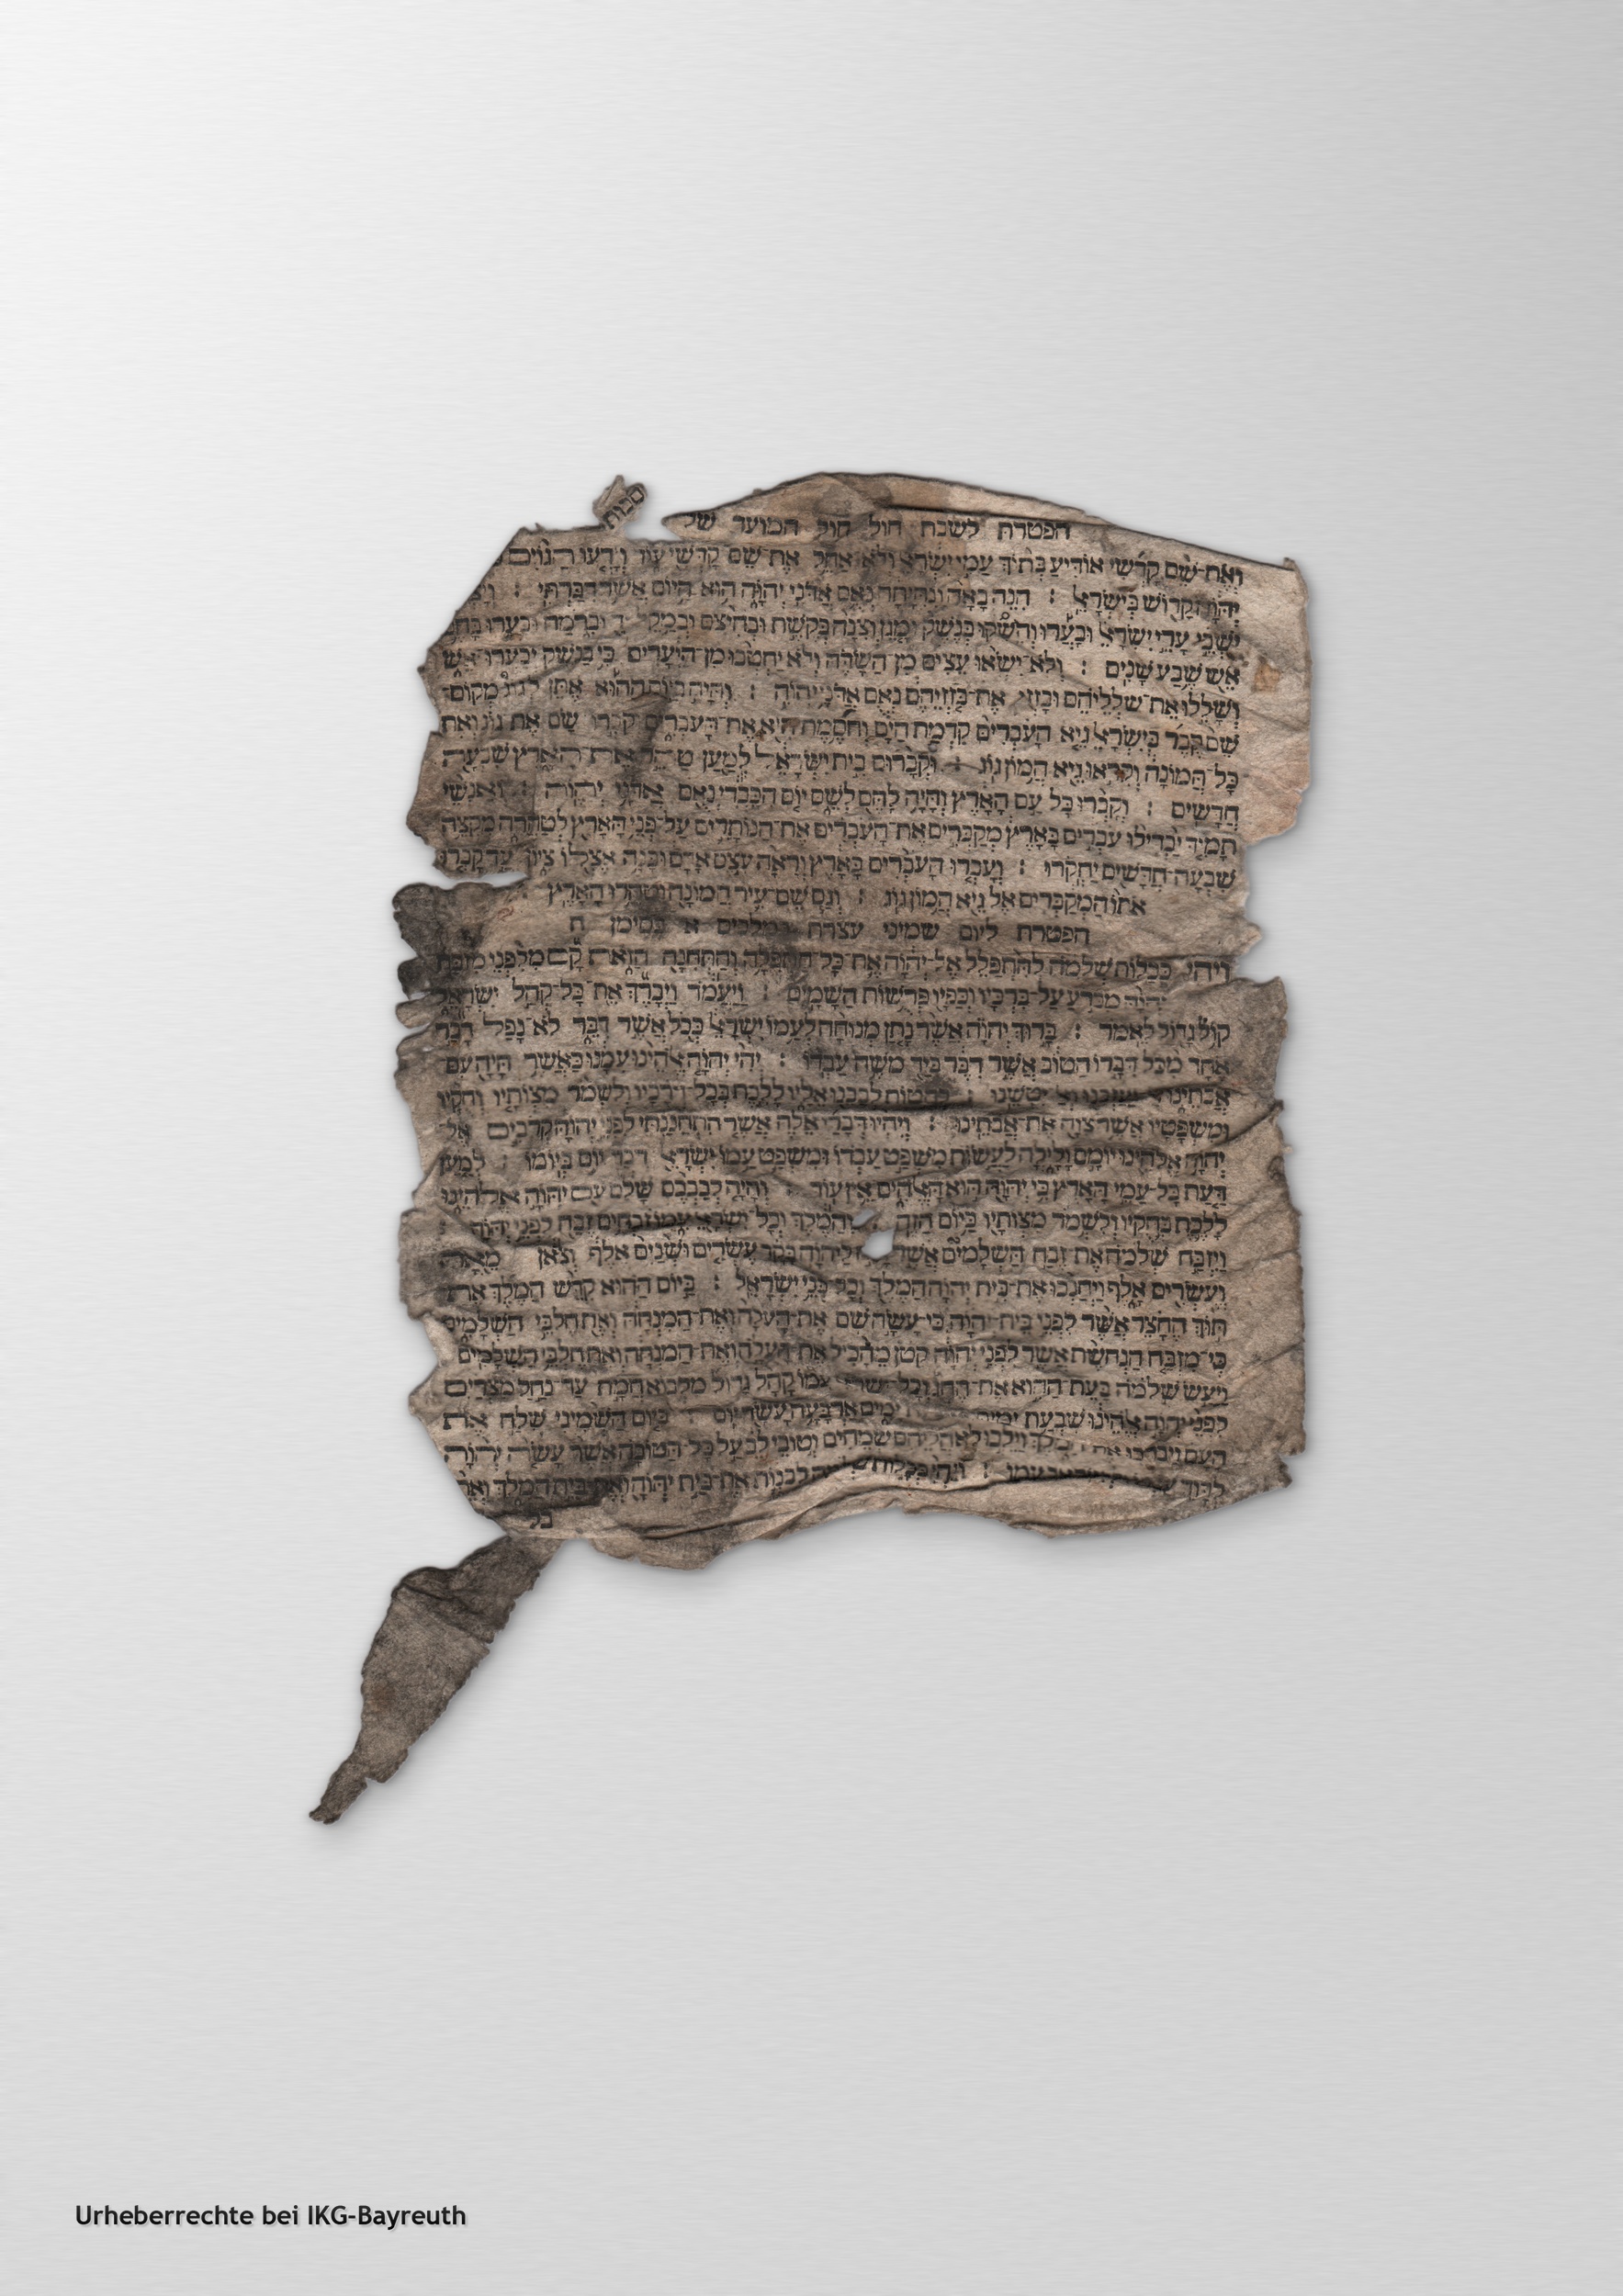 סכות
הפטרת לשבת חול חול המועד של
ואת שם קדשי אודיע בתוך עמי ישראל ולא אחל את שם קדשי עוד וידעו הגוים
יהוה קדוש בישראל : הנה באה ונהיתה נאם אדני יהוה הוא היום אשר דברתי :
ישבי ערי ישראל ובערו והשיקו בנשק ומגן וצנה בקשת ובחצים ובמקל יד וברמח ובערו בהם
אש שבע שנים : ולא ישאו עצים מן השדה ולא יחטבו מן היערים כי בנשק יבערו אש
ושללו את שלליהם ובזזו את בזזיהם נאם אדני יהוה : והיה ביום ההוא אתן לגוג מקום
שם קבר בישראל גיא העברים קדמת הים וחסמת היא את העברים קברו שם את גוג ואת
כל המונה וקראו גיא המון גוג : וקברום בית ישראל למען טהר את הארץ שבעה
חדשים : וקברו כל עם הארץ והיה להם לשם יום הכבדי נאם אדני יהוה : ואנשי
תמיד יבדילו עברים בארץ מקברים את העברים את הנותרים על פני הארץ לטהרה מקצה
שבעה חדשים יחקרו : ועברו העברים בארץ וראה עצם אדם ובנה אצלו ציון עד קברו
אתו המקברים אל גיא המון גוג : וגם שם עיר המונה וטהרו הארץ :
הפטרת ליום שמיני עצרת במלכים א בסימן ח
ויהי ככלות שלמה להתפלל אל יהוה את כל התפלה והתחנה הזאת קם מלפני מזבח
יהוה מכרע על ברכיו וכפיו פרשות השמים : ויעמד ויברך את כל קהל ישראל
קול גדול לאמר : ברוך יהוה אשר נתן מנוחה לעמו ישראל ככל אשר דבר לא נפל דבר
אחד מכל דברו הטוב אשר דבר ביד משה עבדו : יהי יהוה אלהינו עמנו כאשר היה עם
אבתינו אל יעזבנו ואל יטשנו : להטות לבבנו אליו ללכת בכל דרכיו ולשמר מצותיו וחקיו
ומשפטיו אשר צוה את אבתינו : ויהיו דברי אלה אשר התחננתי לפני יהוה קרבים אל
יהוה אלהינו יומם ולילה לעשות משפט עבדו ומשפט עמו ישראל דבר יום ביומו : למען
דעת כל עמי הארץ כי יהוה הוא האלהים אין עוד : והיה לבבכם שלם עם יהוה אלהינו
ללכת בחקיו ולשמר מצותיו כיום הזה : והמלך וכל ישראל עמו זבחים זבח לפני יהוה :
ויזבח שלמה את זבח השלמים אשר ליהוה בקר עשרים ושנים אלף וצאן מאה
ועשרים אלף ויחנכו את בית יהוה המלך וכל בני ישראל : ביום ההוא קדש המלך את
תוך החצר אשר לפני בית יהוה כי עשה שם את העלה ואת המנחה ואת חלבי השלמים
כי מזבח הנחשת אשר לפני יהוה קטן מהכיל את העלה ואת המנחה ואת חלבי השלמים
ויעש שלמה בעת ההוא את החג וכל ישראל עמו קהל גדול מלבוא חמת עד נחל מצרים
לפני יהוה אלהינו שבעת ימים ימים ארבעה עשר יום : ביום השמיני שלח את
העם ויברכו את המלך וילכו לאהליהם שמחים וטובי לב על כל הטובה אשר עשה יהוה
לדוד עמו : ויהי ככלות שלמה לבנות את בית יהוה ואת בית המלך ואת
כל
Urheberrechte bei IKG-Bayreuth